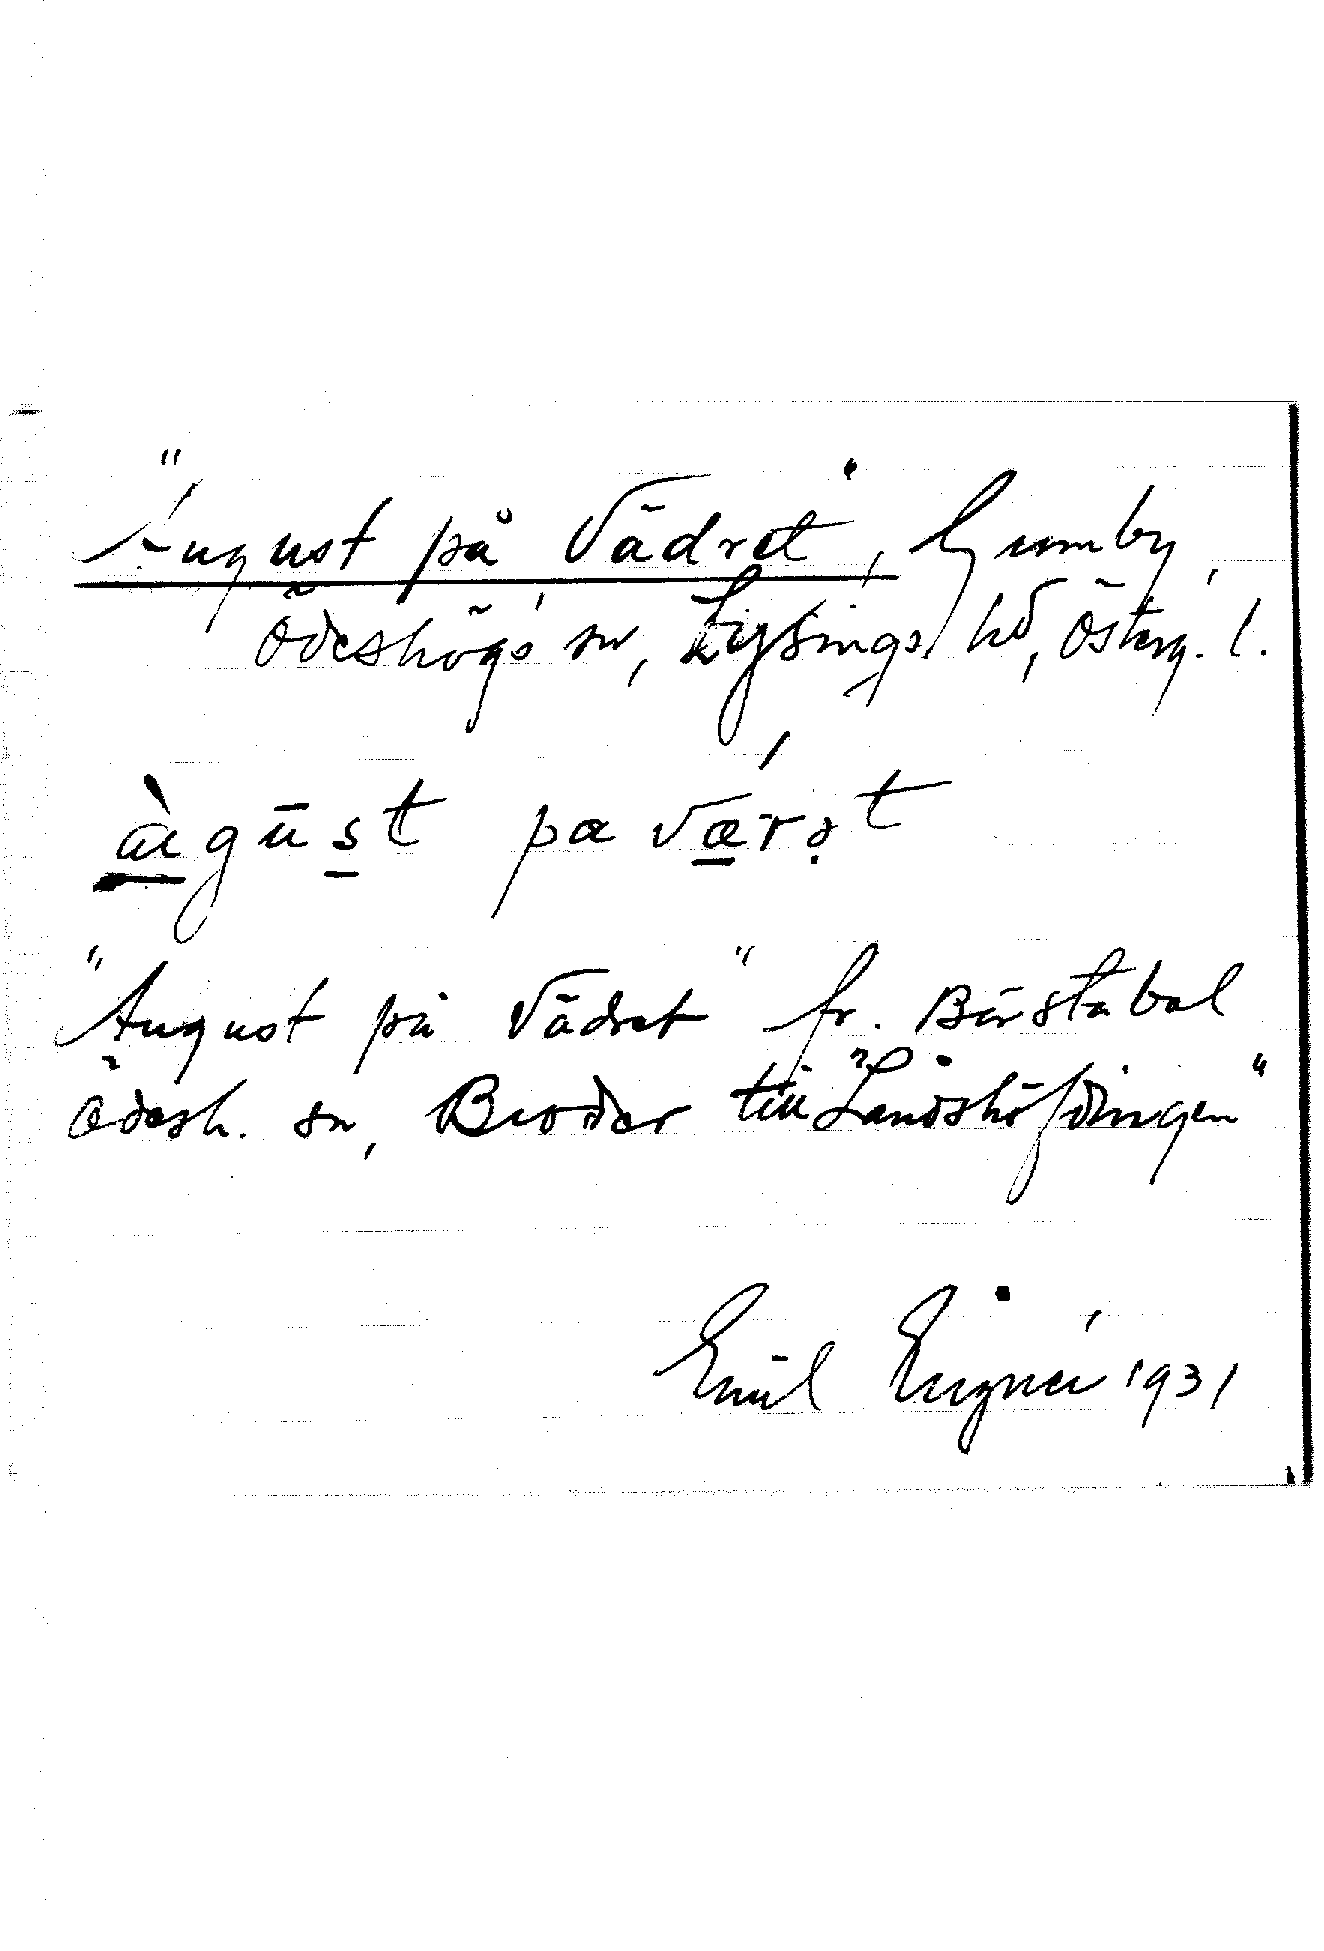 "August på Vädret", Gumby,
Ödeshögs sn, Lysings hd, Österg. l.
àugūst pa værət
"August på Vädret" fr. Börstabol
Ödesh. sn, Broder till "Landshöfdingen"
Emil 1931